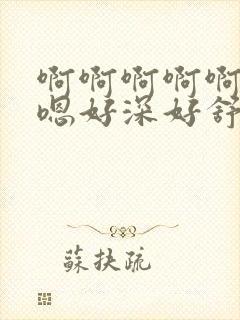 啊啊啊啊啊
嗯好深好舒
蘇扶疏